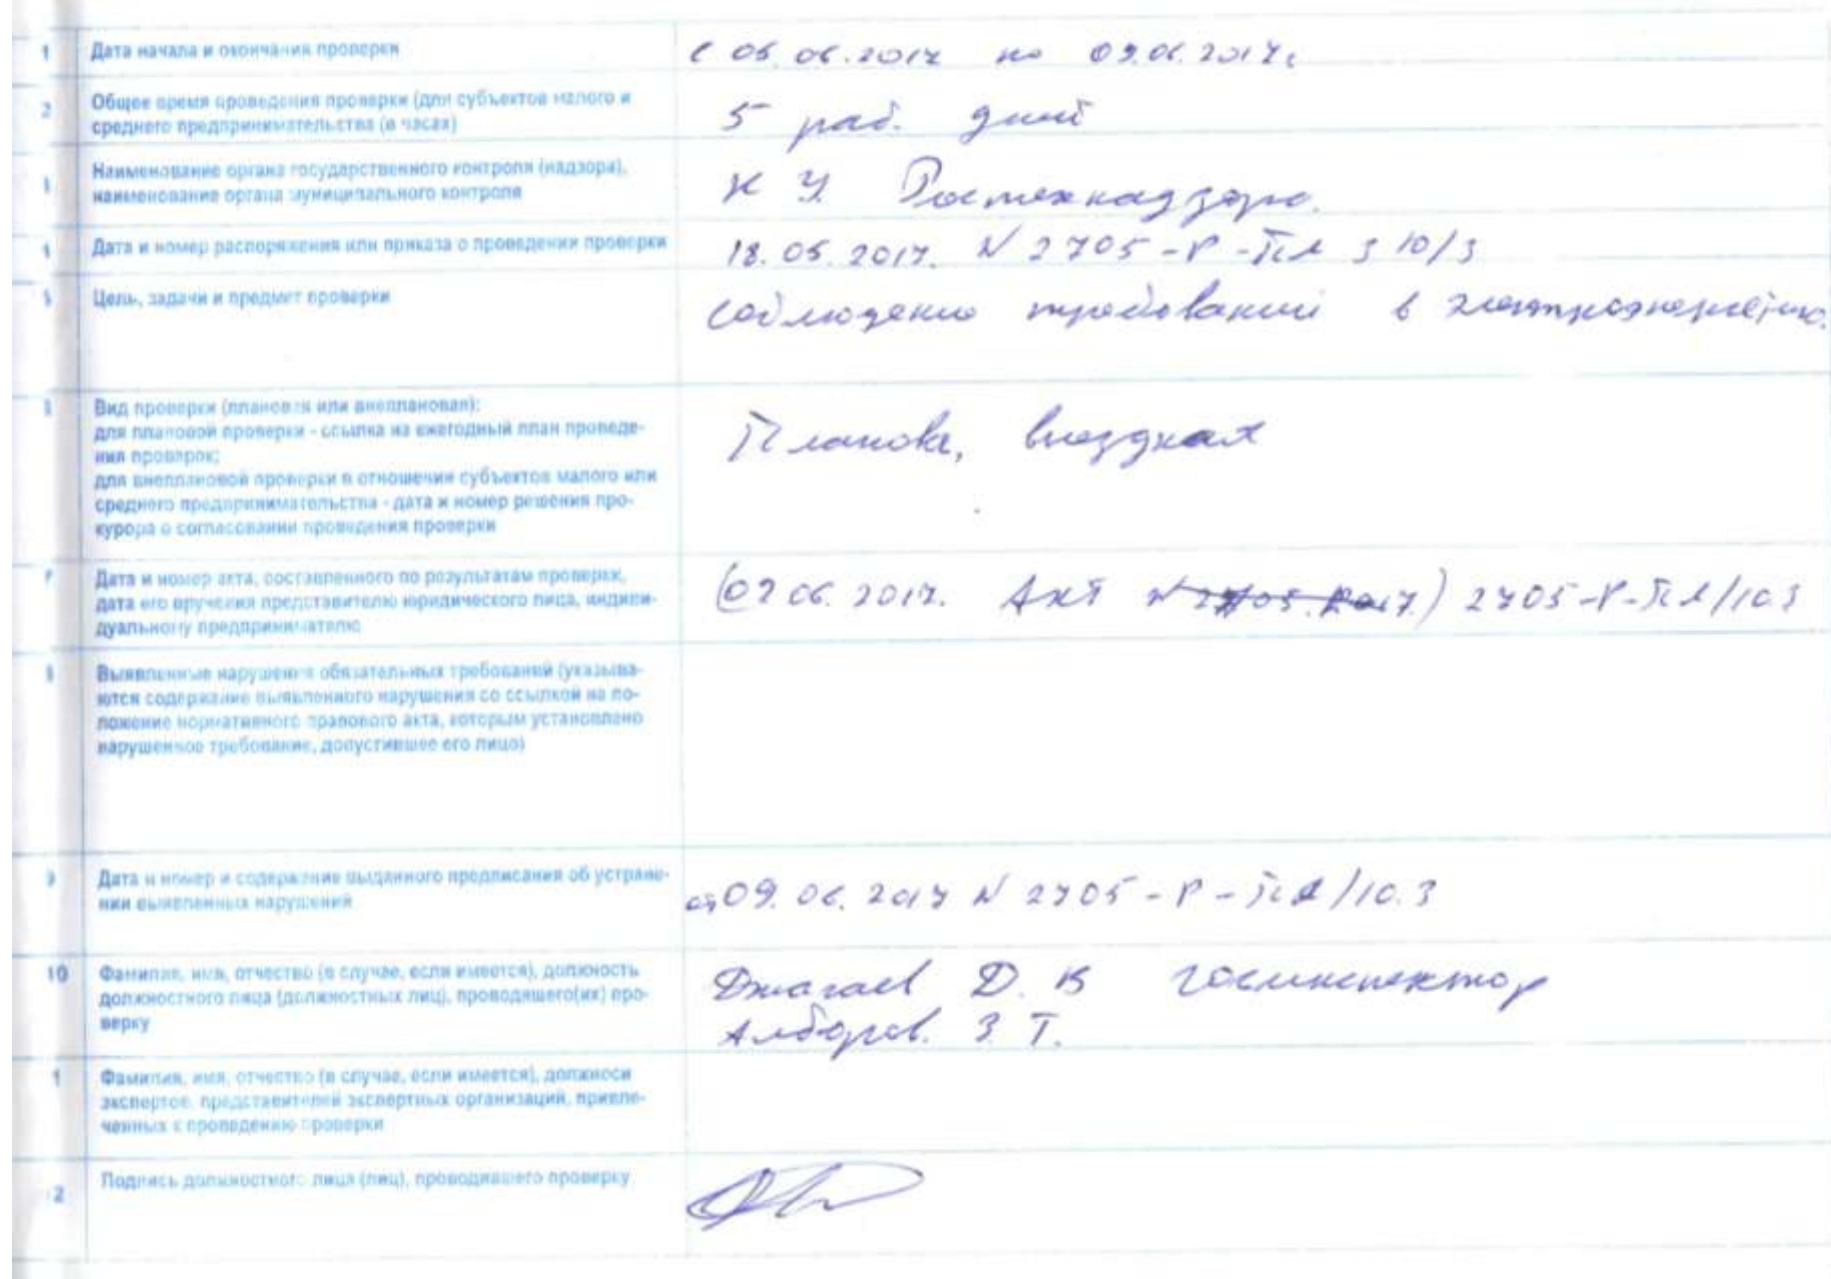 1 Дата начала и окончания проверки с 05.06.2017 по 09.06.2017г
2 Общее время проведения проверки (для субъектов малого и
среднего предпринимательства (в часах) 5 раб. дней
Наименование органа государственного контроля (надзора),
наименование органа муниципального контроля К У Ростехнадзора.
Дата и номер распоряжения или приказа о проведении проверки 18.05.2017. N 2705-Р-
5 Цель, задачи и предмет проверки соблюдение требований в
Вид проверки (плановая или внеплановая):
для плановой проверки - ссылка на ежегодный план проведе-
ния проверок;
для внеплановой проверки в отношении субъектов малого или
среднего предпринимательства - дата и номер решения про-
курора о согласовании проведения проверки
Планова, выездная
Дата и номер акта, составленного по результатам проверки,
дата его вручения представителю юридического лица, индиви-
дуальному предпринимателю
(09.06.2017. Акт N ) 2705-Р-Пл/10.3
Выявленные нарушения обязательных требований (указыва-
ются содержание выявленного нарушения со ссылкой на по-
ложение нормативного правового акта, которым установлено
нарушенное требование, допустившее его лицо)
9 Дата и номер и содержание выданного предписания об устране-
нии выявленных нарушений от 09.06.2017 N 2705-Р-Пл/10.3
10 Фамилия, имя, отчество (в случае, если имеется), должность
должностного лица (должностных лиц), проводящего(их) про-
верку
Джагаев Д. В госинспектор
Алборов. З. Т.
1 Фамилия, имя, отчество (в случае, если имеется), должноси
экспертов, представителей экспертных организаций, привле-
ченных к проведению проверки
2 Подпись должностного лица (лиц), проводившего проверку